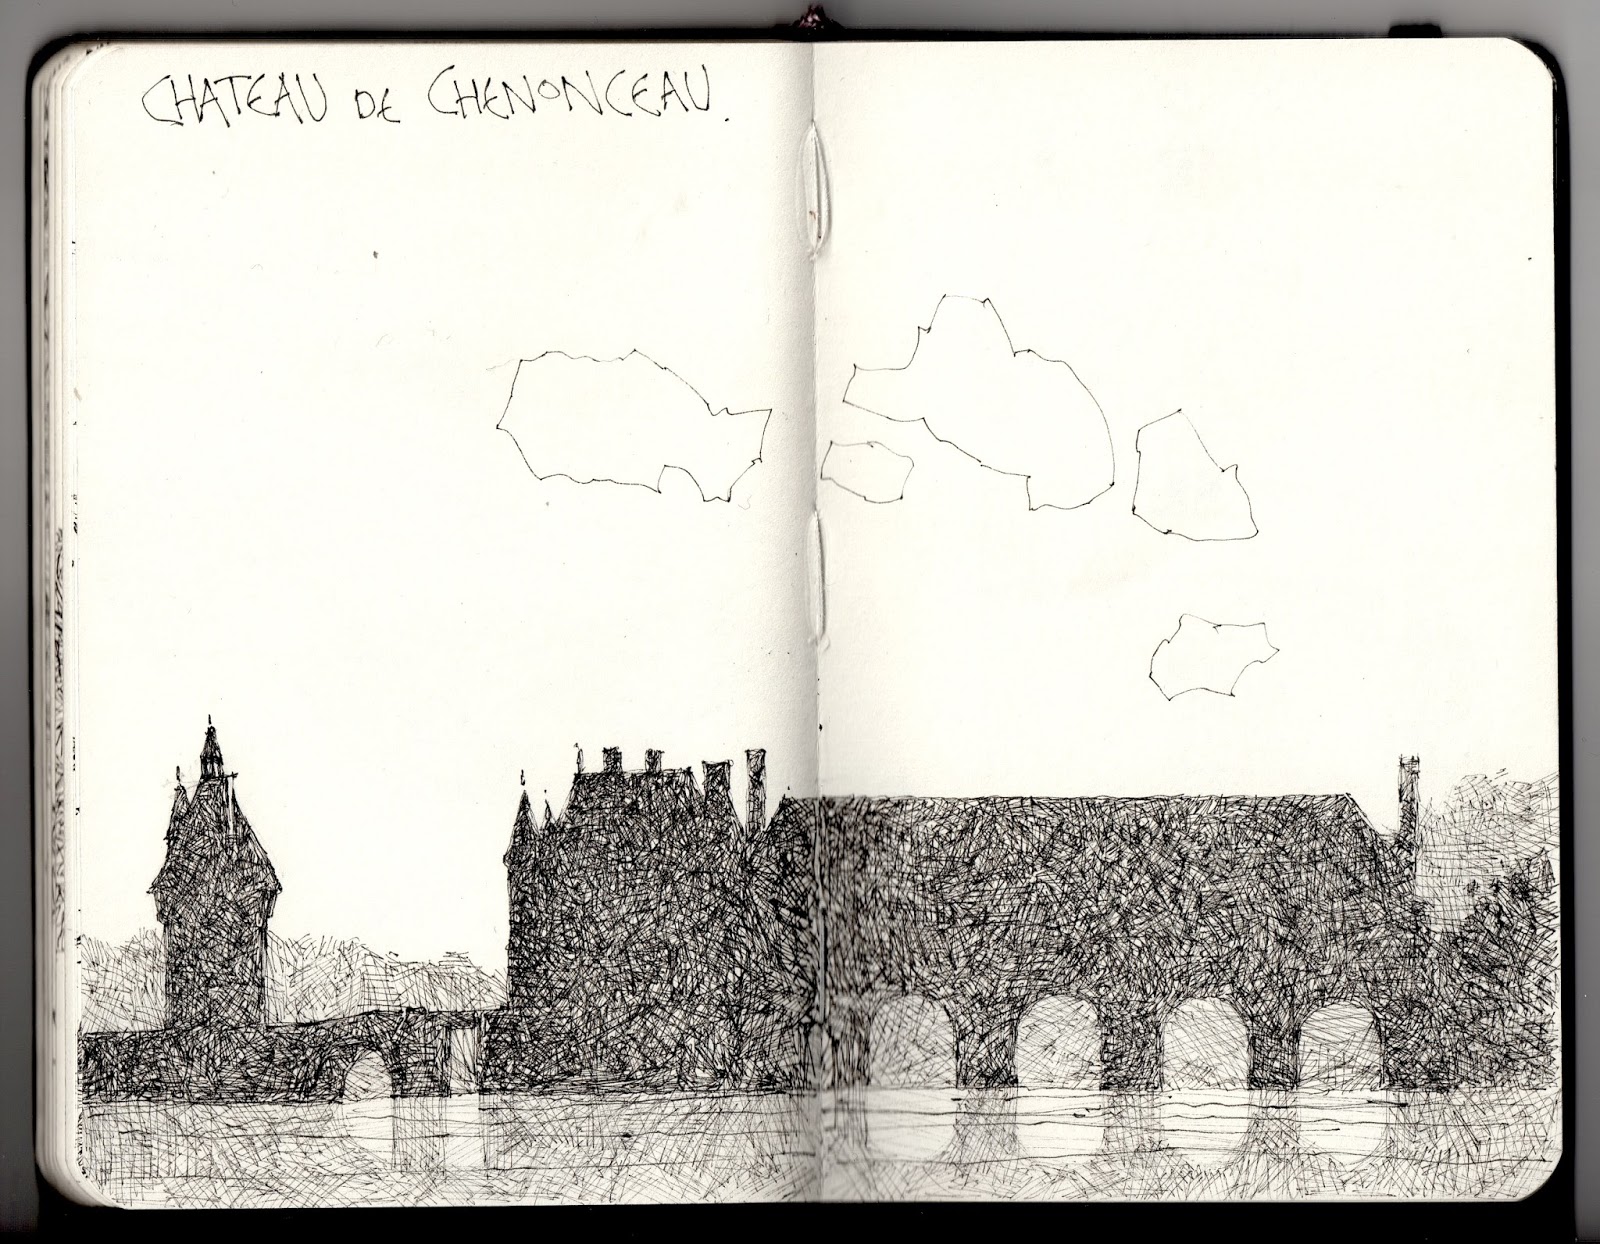 CHATEAU DE CHENONCEAU.